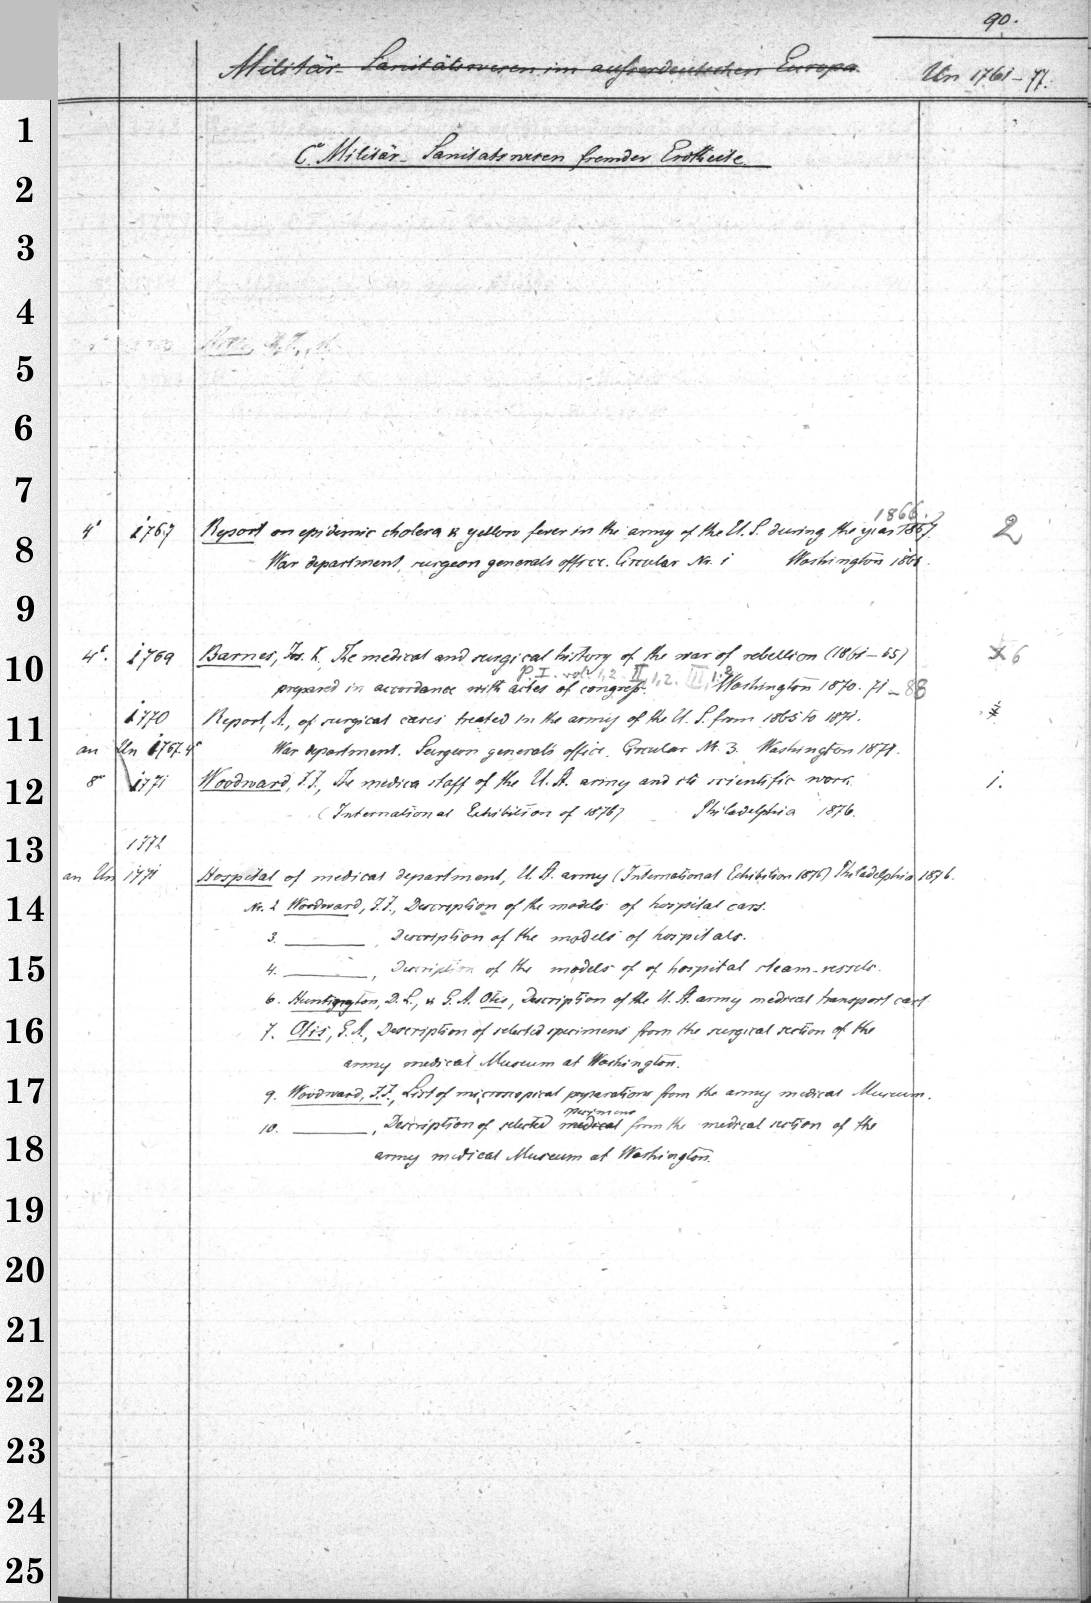 90.
Militär-Sanitätswesen im ausserdeutschen Europa. Un 1761-77.
C. Militär-Sanitätswesen fremder Erdtheile.
1866.
4° 1767 Report on epidemic cholera & yellow fever in the army of the U.S. during the year 1867. 2
War department, surgeon generals office. Circular Nr. 1 Washington 1868.
4°. 1769 Barnes, Jos. K. The medical and surgical history of the war of rebellion (1861-65) 6
P. I. vol. 1,2. II, 1,2. III, 1.2
prepared in accordance with actes of congress. Washington 1870. 71-88
1770 Report, A, of surgical cases treated in the army of the U.S. from 1865 to 1871.
an Un 1767.4° War department. Surgeon general's office. Circular Nr. 3. Washington 1871.
8° 1771 Woodward, J.J., The medica staff of the U.A. army and its scientific work. 1.
(International Exhibition of 1876) Philadelphia 1876.
1772
an Un 1771 Hospital of medical department, U.A. army (International Exhibition 1876) Philadelphia 1876.
Nr. 2 Woodward, J.J., Description of the models of hospital cars.
3. ______, Description of the models of hospitals.
4. ______, Description of the models of of hospital steam-vessels.
6. Huntington, D.L., & G.A. Otis, Description of the U.A. army medical transport cart
7. Otis, G.A., Description of selected specimens from the surgical section of the
army medical Museum at Washington.
9. Woodward, J.J., List of microscopical preparations from the army medical Museum.
specimens
10. ______, Description of selected medical from the medical section of the
army medical Museum at Washington.
1
2
3
4
5
6
7
8
9
10
11
12
13
14
15
16
17
18
19
20
21
22
23
24
25